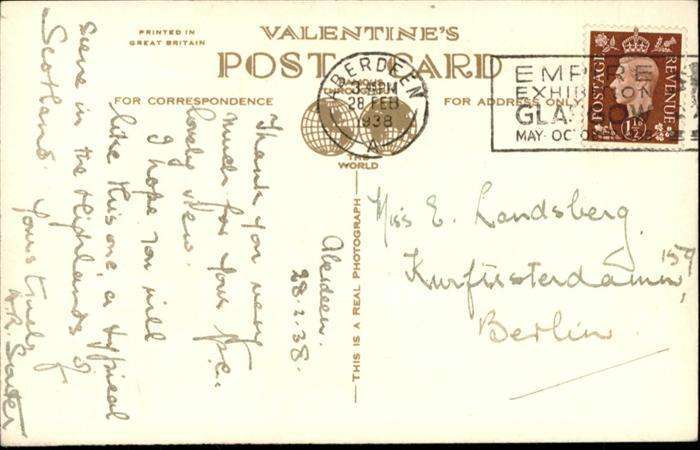 PRINTED IN
GREAT BRITAIN
VALENTINE'S
POST CARD
FAMOUS
THROUGHOUT
THE
WORLD
FOR CORRESPONDENCE
FOR ADDRESS ONLY
ABERDEEN
3 PM
28 FEB
1938
A
EMPIRE
EXHIBITION
GLASGOW
MAY-OCT
POSTAGE
REVENUE
1½D
THIS IS A REAL PHOTOGRAPH
Aberdeen.
28.2.38.
Thank you very
much for your p.c.
lovely view.
I hope you will
like this one a typical
scene in the Highlands of
Scotland. Yours truly
Miss E. Landsberg.
Kurfüsterdamm 159,
Berlin.